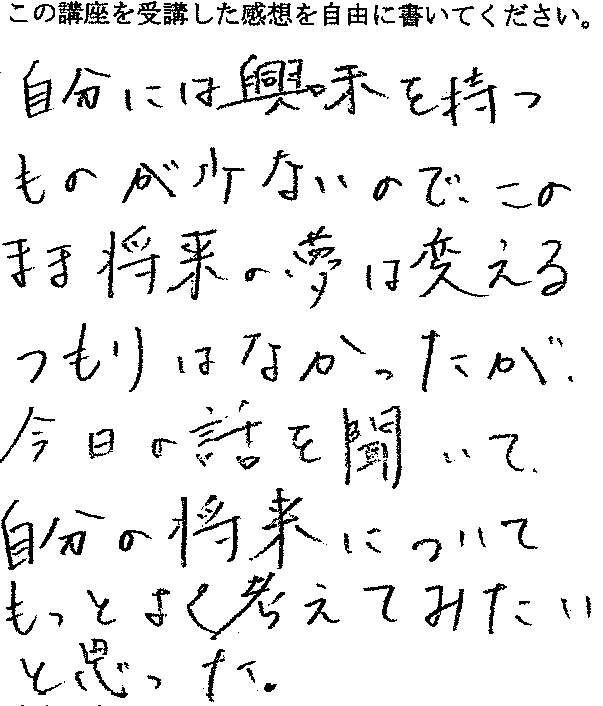 この講座を受講した感想を自由に書いてください。
自分には興味を持つ
ものが少ないので、この
まま将来の夢は変える
つもりはなかったが、
今日の話を聞いて、
自分の将来について
もっとよく考えてみたい
と思った。